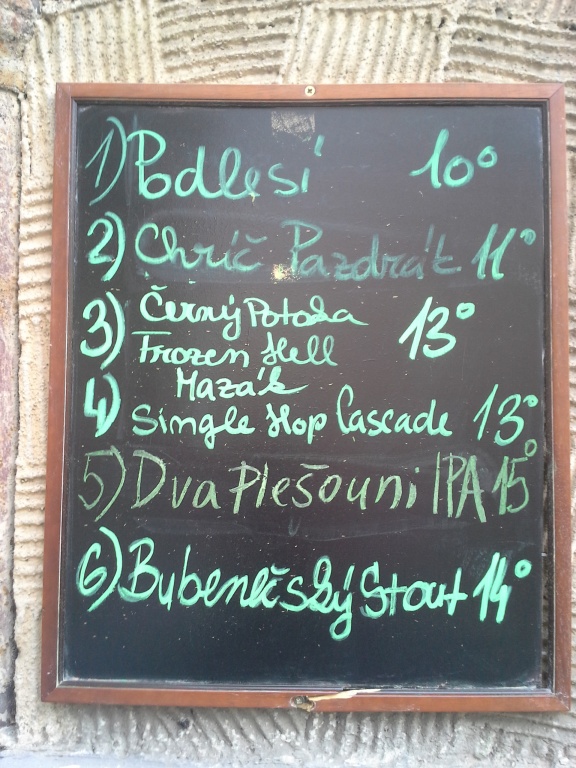 1) Podlesí 10°
2) Chříč Pazdrát 11°
3) Černý Potoka
Frozen Hell 13°
Mazák
4) Single Hop Cascade 13°
5) Dva Plešouni IPA 15°
6) Bubenečský Stout 14°